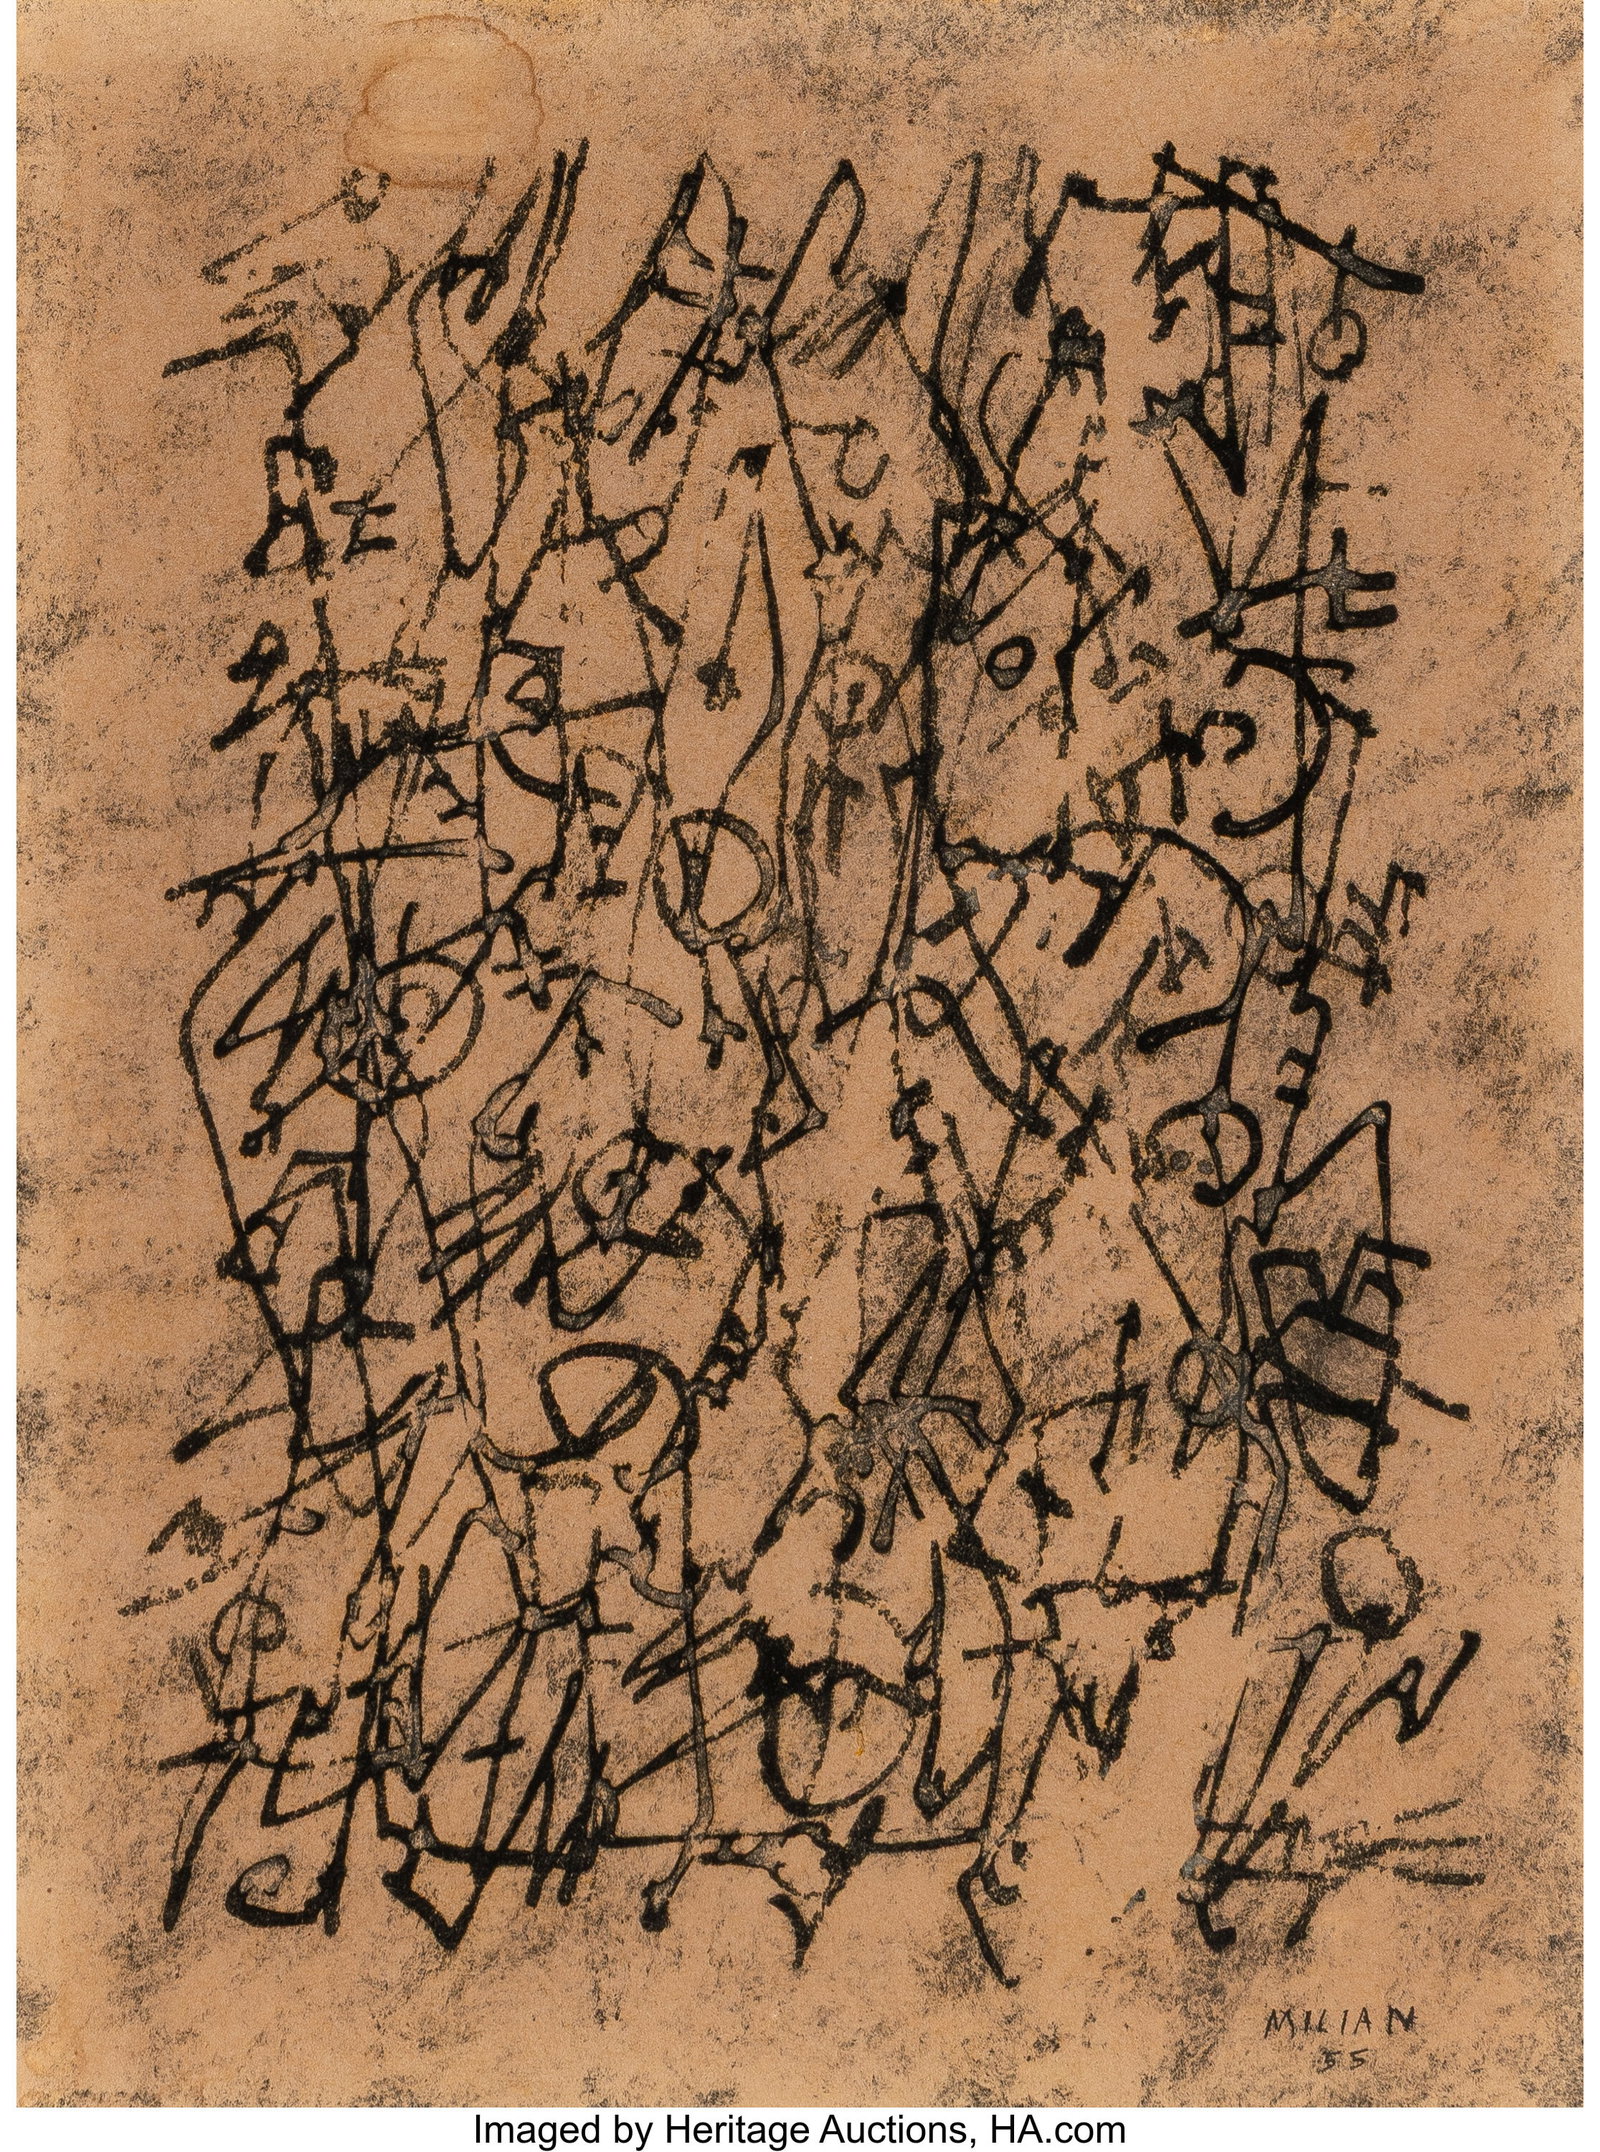 MILIAN
55
Imaged by Heritage Auctions, HA.com